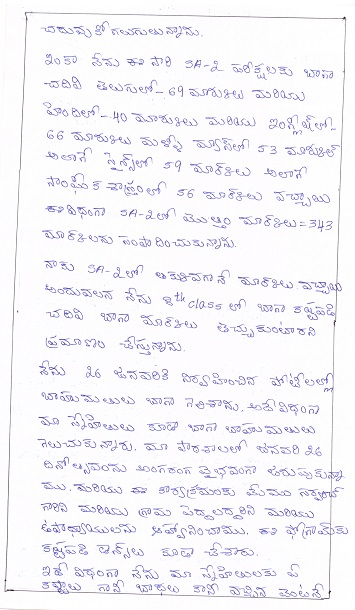 చదువుకో గలుగులున్నాను.
ఇంకా నేను ఈ సారి SA-2 పరీక్షలకు బాగా
చదివి తెలుసులో - 69 మార్కులు మరియు
హిందిలో - 40 మార్కులు మరియు ఇంగ్లీషులో -
66 మార్కులు మళ్ళీ మ్యాథ్స్‌లో 53 మార్కుల్
అలాగే సైన్స్‌లో 59 మార్కులు అలాగే
సాంఘీక శాస్త్రంలో 56 మార్కులు వచ్చాయి
ఈవిధంగా SA-2లో మొత్తం మార్కులు = 343
మార్కులను సంపాదించుకున్నాను.
నాకు SA-2లో తక్కువగానే మార్కులు వచ్చాయి
అందువలన నేను 8th class లో బాగా కష్టపడి
చదివి బాగా మార్కులు తెచ్చుకుంటానని
ప్రమాణం చేస్తున్నాను.
నేను 26 జనవరికి నిర్వహించిన పోటీలలో
బాహుమతులు బాగా గెలిచాను. అదే విధంగా
మా స్నేహితులు కూడా బాగా బాహుమతులు
గెలుచుకున్నారు. మా పాఠశాలలో జనవరి 26
దినోత్సవంను అంగరంగ వైభవంగా జరుపుకున్నా
ము. మరియు ఈ కార్యక్రమంకు మేము సర్పంచ్
గారిని మరియు గ్రామ పెద్దలద్దరిని మరియు
ఉపాధ్యాయులను ఆహ్వానించాము. ఈ ప్రోగ్రామ్‌కు
కష్టపడి డ్యాన్స్‌లు కూడా చేశారు.
ఇదే విధంగా నేను మా స్నేహితులకు ఏ
కష్టాలు గానీ బాధలు కానీ వచ్చిన వెంటనే